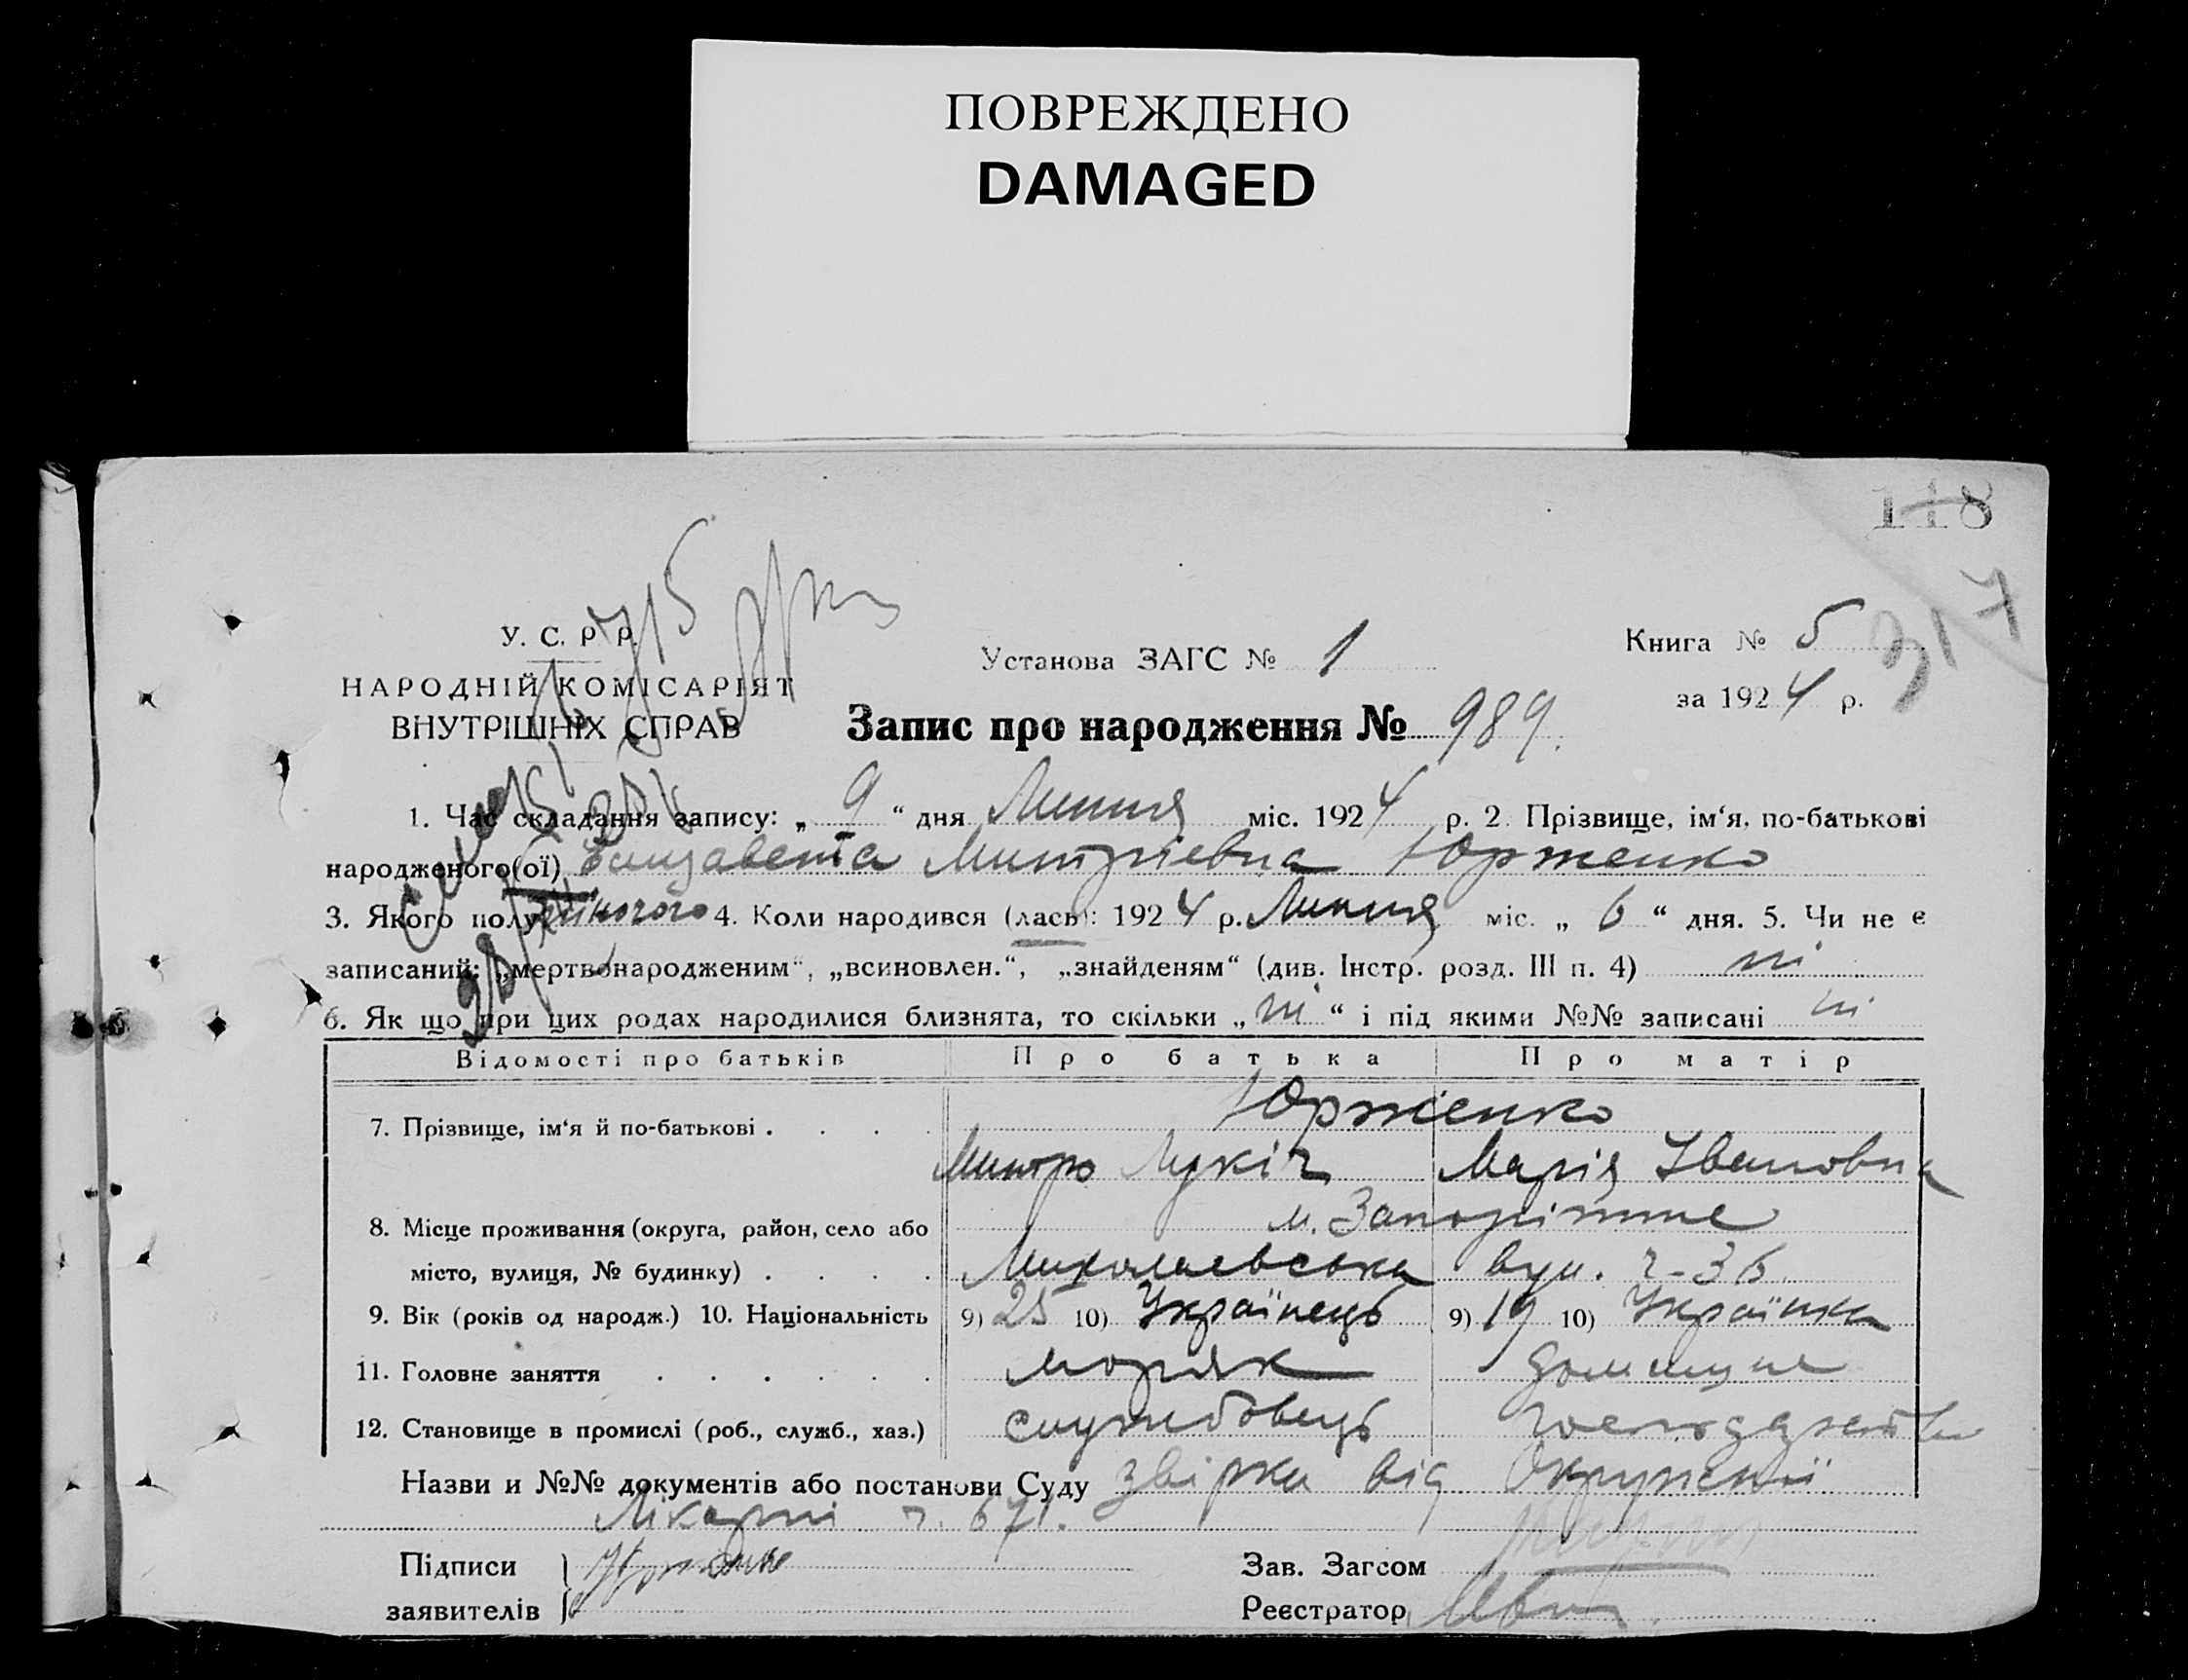 ПОВРЕЖДЕНО
DAMAGED
118
317
У. С. Р Р.
НАРОДНІЙ КОМІСАРІЯТ
ВНУТРІШНІХ СПРАВ
Установа ЗАГС № 1
Книга № 5
за 1924 р.
Запис про народження № 989.
1. Час складання запису: „ 9 “ дня Липня міс. 1924 р. 2. Прізвище, ім‘я, по-батькові
народженого(ої) Єлизавета Митріевна Юрженко
3. Якого полу жіночого 4. Коли народився (лась): 1924 р. Липня міс. „ 6 “ дня. 5. Чи не є
записаний: „мертвонародженим“, „всиновлен.“, „знайденям“ (див. Інстр. розд. III п. 4) ні
6. Як що при цих родах народилися близнята, то скільки „ ні “ і під якими №№ записані ні
Відомості про батьків Про батька Про матір
Юрженко
7. Прізвище, ім‘я й по-батькові . . . .
Митро Лукіч Марія Івановна
м. Запоріжжє
8. Місце проживання (округа, район, село або
місто, вулиця, № будинку) . . . . Миколаевська вул. ч-36
9. Вік (років од народж.) 10. Національність 9) 25 10) Українець 9) 19 10) Українка
11. Головне заняття . . . . . . моряк домашнє
12. Становище в промислі (роб., служб., хаз.) службовець господарство
Назви и №№ документів або постанови Суду звірка від Окружної
Лікарні ч. 671.
Підписи
заявителів
Зав. Загсом
Реєстратор